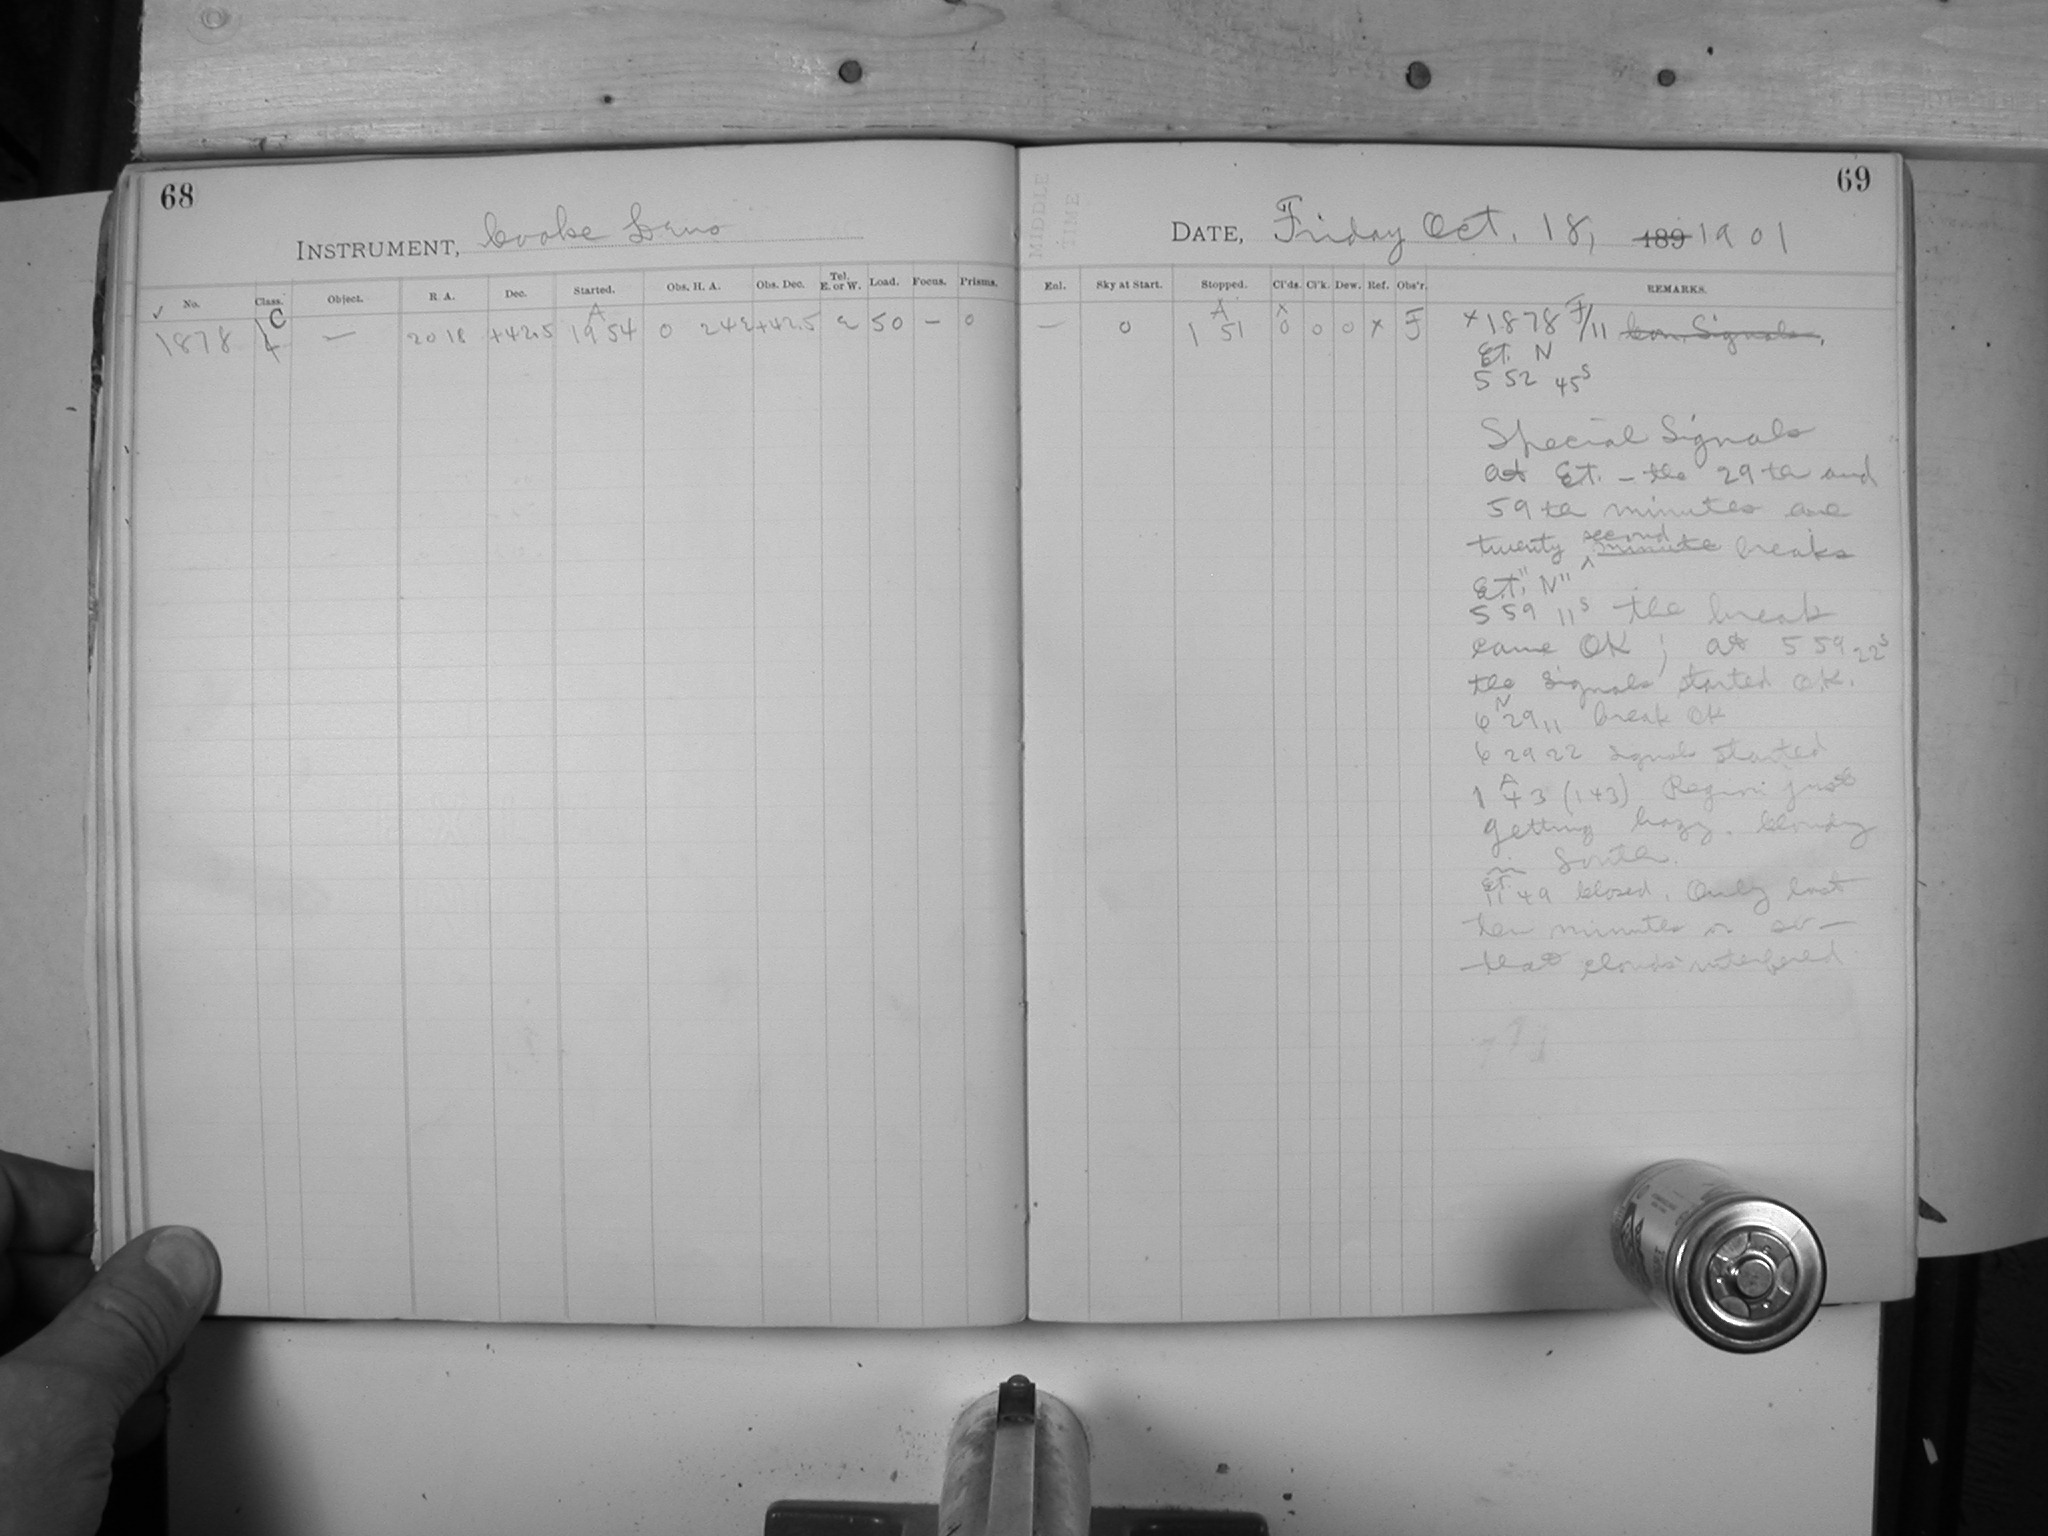 68
INSTRUMENT, Cooke Lens
No. Class. Object. R A. Dec. Started. Obs. H. A. Obs. Dec. Tel. E. or W. Load. Focus. Prisms.
✓ C A
1878 L — 20 18 +42.5 19 54 0 24 E +42.5 E 50 – 0
69
MIDDLE
TIME
DATE, Friday Oct. 18, 189 1901
Enl. Sky at Start. Stopped. Cl'ds. Cl'k. Dew. Ref. Obs'r. REMARKS.
A x
— 0 1 51 0 0 0 x F
x 1878 F/11 Con. Signals,
E.T. N
5 52 45s
Special Signals
at E.T. – the 29th and
59th minutes are
twenty second minute breaks
E.T. "N"
5 59 11s the break
came OK; at 5 59 22s
the signals started O.K.
N
6 29 11 break OK
6 29 22 signals started
A
1 43 (1 43) Region just
getting hazy. Cloudy
in South.
E.T.
11 49 Closed. Only last
ten minutes or so –
that clouds interfered